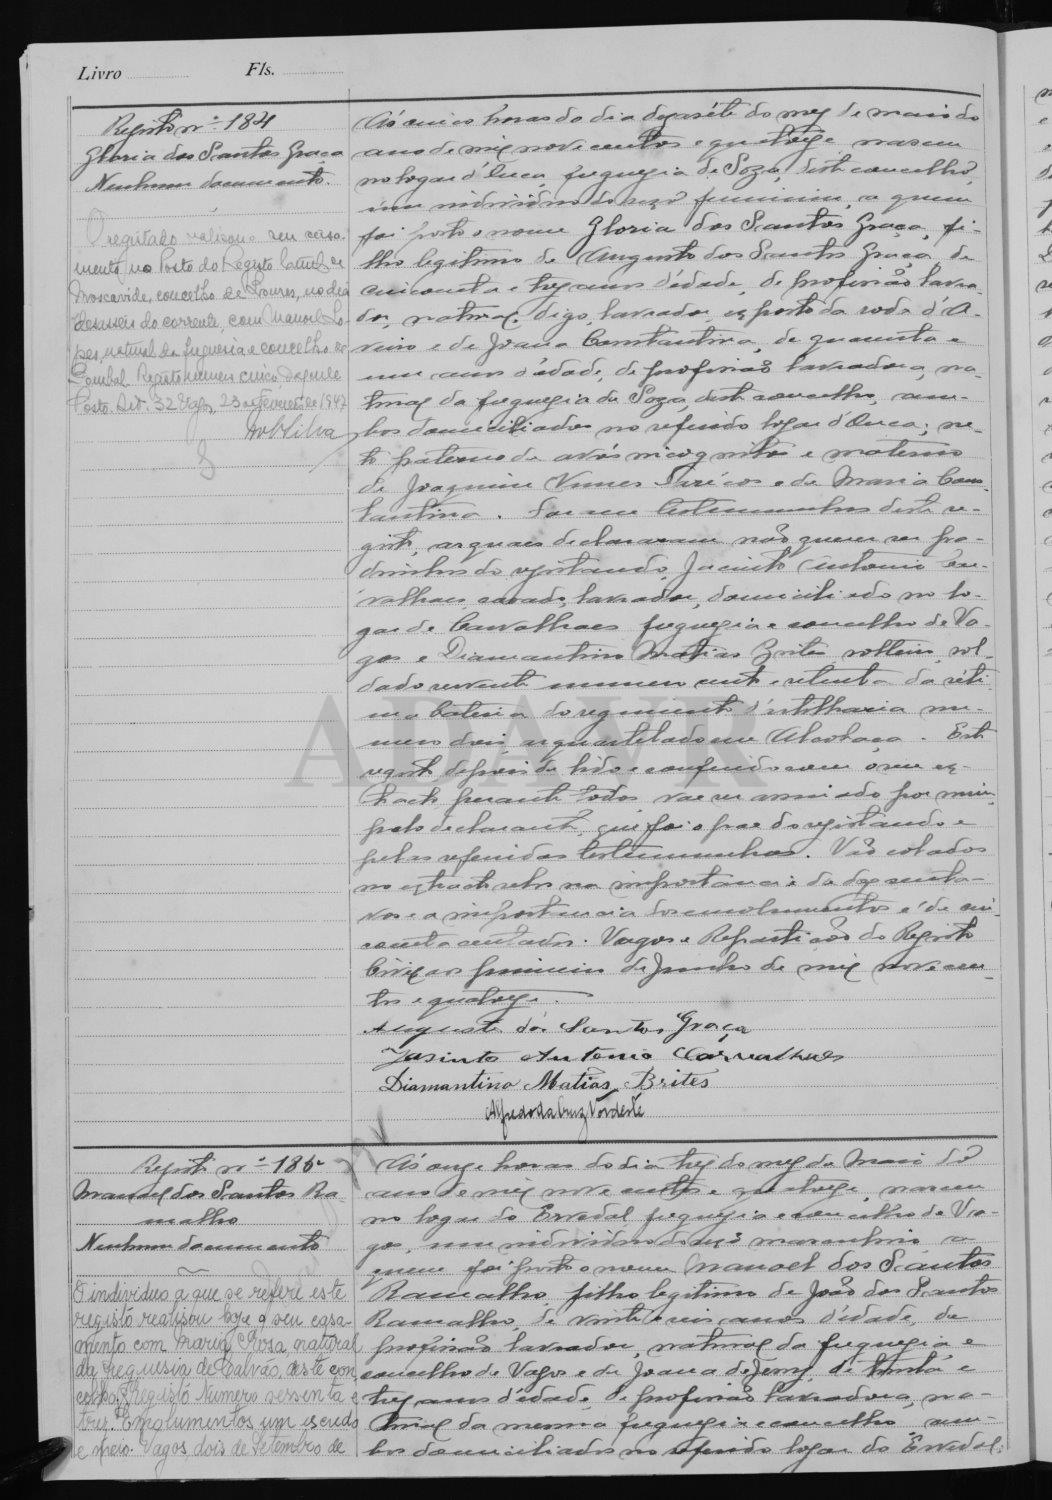 Livro Fls.
Registo nº 184
Gloria dos Santos Graça
Nenhum documento.
O registado realisou seu casa-
mento, no Posto do Registo Civil de
Moscavide, concelho de Loures, no dia
desasseis do corrente, com Manoel Lo-
pes, natural da freguesia e concelho de
Pombal. Registo numero cinco daquele
Posto. 23 de Fevereiro de 1947
Silva
Ás cinco horas do dia dezasséte do mez de maio do
ano de mil novecentos e quatorze nasceu
no logar d'Ouca, freguezia de Soza, deste concelho,
um individuo do sexo feminino, a quem
foi posto o nome Gloria dos Santos Graça, fi-
lho legitimo de Augusto dos Santos Graça, de
cincoenta e trez anos d'edade, de profissão lavra-
dor, natural, digo, lavrador, exposto da roda d'A-
veiro e de Joana Constantina, de quarenta e
um anos d'edade, de profissão lavradora, na-
tural da freguezia de Soza, deste concelho, am-
bos domiciliados no referido logar d'Ouca; ne-
to paterno de avós incognitos e materno
de Joaquim Nunes e de Maria Cons-
tantina. Foram testemunhas deste re-
gisto, as quaes declararam não querer ser pa-
drinhos do registando, Jacinto Antonio Car-
valhaes casado, lavrador, domiciliado no lo-
gar de Carvalhaes freguezia e concelho de Va-
gos e Diamantino Matias Brites solteiro, sol-
dado servente numero cento e setenta da séti-
ma bateria do regimento d'artilharia nu-
mero dois, aquartelado em Alcobaça. Este
registo, depois de lido e conferido com o seu ex-
tracto perante todos, vae ser assinado por mim,
pelo declarante, que foi o pae do registando e
pelas referidas testemunhas. Vão colados
no extracto selos na importancia de dezsenta-
vos e a importancia dos emolumentos é de cin-
coenta centavos. Vagos e Repartição do Registo
Civil aos primeiro de Junho de mil novecen-
tos e quatorze.
Augusto dos Santos Graça
Jasinto Antonio Carvalhaes
Diamantino Matias Brites
Alfredo da Cruz Nordeste
ADAVR
Registo nº 185
Manoel dos Santos Ra-
malho
Nenhum documento
O individuo a que se refere este
registo realisou hoje o seu casa-
mento com Maria Rosa, natural
da freguesia de Calvão, deste con-
celho. Registo numero sessenta e
trez. Emolumentos um escudo
e meio. Vagos, dois de Setembro de
Ás onze horas do dia trez do mez de Maio do
ano de mil novecentos e quatorze, nasceu
no logar do Ervedal freguezia e concelho de Va-
gos, um individuo do sexo masculino, a
quem foi posto o nome Manoel dos Santos
Ramalho, filho legitimo de João dos Santos
Ramalho, de vinte e seis anos d'edade, de
profissão lavrador, natural da freguezia e
concelho de Vagos e de Joana de Jesus, de trinta e
trez anos d'edade, de profissão lavradora, na-
tural da mesma freguezia e concelho, am-
bos domiciliados no referido logar do Ervedal;